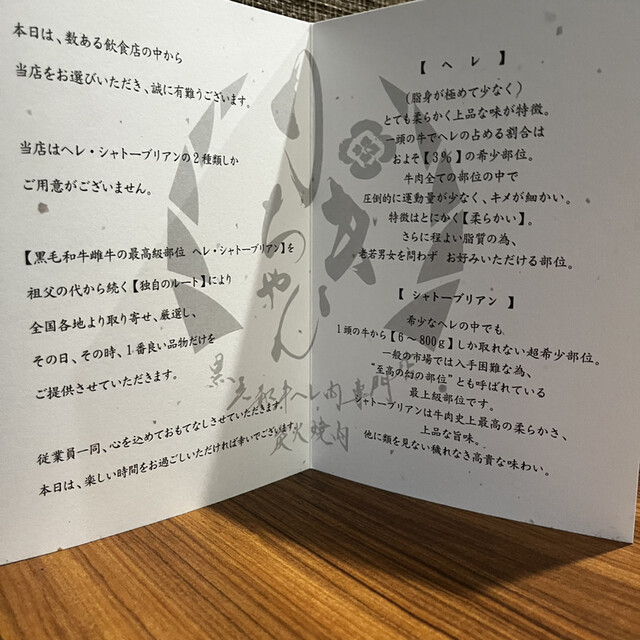 本日は、数ある飲食店の中から
当店をお選びいただき、誠に有難うございます。
当店はヘレ・シャトーブリアンの2種類しか
ご用意がございません。
【黒毛和牛雌牛の最高級部位 ヘレ・シャトーブリアン】を
祖父の代から続く【独自のルート】により
全国各地より取り寄せ、厳選し、
その日、その時、1番良い品物だけを
ご提供させていただきます。
従業員一同、心を込めておもてなしさせていただきます。
本日は、楽しい時間をお過ごしいただければ幸いでございます。
【 ヘ レ 】
(脂身が極めて少なく)
とても柔らかく上品な味が特徴。
一頭の牛でヘレの占める割合は
およそ【3%】の希少部位。
牛肉全ての部位の中で
圧倒的に運動量が少なく、キメが細かい。
特徴はとにかく【柔らかい】。
さらに程よい脂質の為、
老若男女を問わず お好みいただける部位。
【 シャトーブリアン 】
希少なヘレの中でも
1頭の牛から【6～800g】しか取れない超希少部位。
一般の市場では入手困難な為、
"至高の幻の部位"とも呼ばれている
最上級部位です。
シャトーブリアンは牛肉史上最高の柔らかさ、
上品な旨味。
他に類を見ない穢れなき高貴な味わい。
黒毛和牛ヘレ肉専門
炭火焼肉